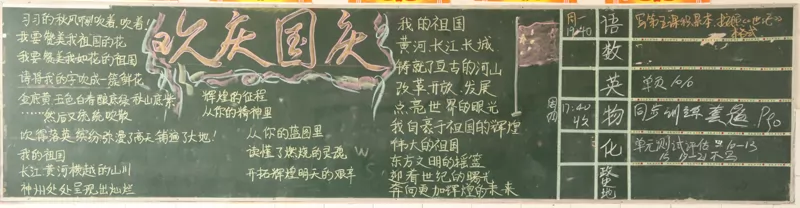 欢庆国庆
习习的秋风啊吹着,吹着!
我要赞美我祖国的花
我要赞美我如花的祖国
请将我的字吹成一簇鲜花
金底黄 玉色白 春酿绿 秋山紫
……然后又统统吹散
吹得落英缤纷弥漫了高天铺遍了大地!
我的祖国
长江黄河横越的山川
神州处处呈现出灿烂
辉煌的征程
从你的精神里
从你的蓝图里
读懂了燃烧的灵魂
开拓辉煌明天的艰辛
我的祖国
黄河、长江、长城
铸就了亘古的河山
改革开放、发展
点亮世界的眼光
我自豪于祖国的辉煌
伟大的祖国
东方文明的摇篮
迎着世纪的曙光
奔向更加辉煌的未来
周一
19:40
语
数
英 单页
物 同步训练 P90
17:40
化 单元测试评估 10-13
政
地